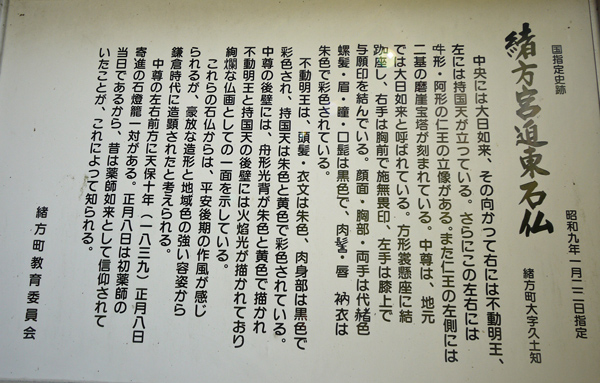 国指定史跡
緒方宮迫東石仏
昭和九年一月二二日指定
緒方町大字久土知
中央には大日如来、その向かって右には不動明王、
左には持国天が立っている。さらにこの左右には
吽形・阿形の仁王の立像がある。また仁王の左側には
二基の磨崖宝塔が刻まれている。中尊は、地元
では大日如来と呼ばれている。方形裳懸座に結
跏座し、右手は胸前で施無畏印、左手は膝上で
与願印を結んでいる。顔面・胸部・両手は代赭色
螺髪・眉・瞳・口髭は黒色で、肉髻・唇 衲衣は
朱色で彩色されている。
不動明王は、頭髪・衣文は朱色、肉身部は黒色で
彩色され、持国天は朱色と黄色で彩色されている。
中尊の後壁には、舟形光背が朱色と黄色で描かれ
不動明王と持国天の後壁には火焔光が描かれており
絢爛な仏画としての一面を示している。
これらの石仏からは、平安後期の作風が感じ
られるが、豪放な造形と地域色の強い容姿から
鎌倉時代に造顕されたと考えられる。
中尊の左右前方に天保十年（一八三九）正月八日
寄進の石燈籠一対がある。正月八日は初薬師の
当日であるから、昔は薬師如来として信仰されて
いたことが、これによって知られる。
緒方町教育委員会